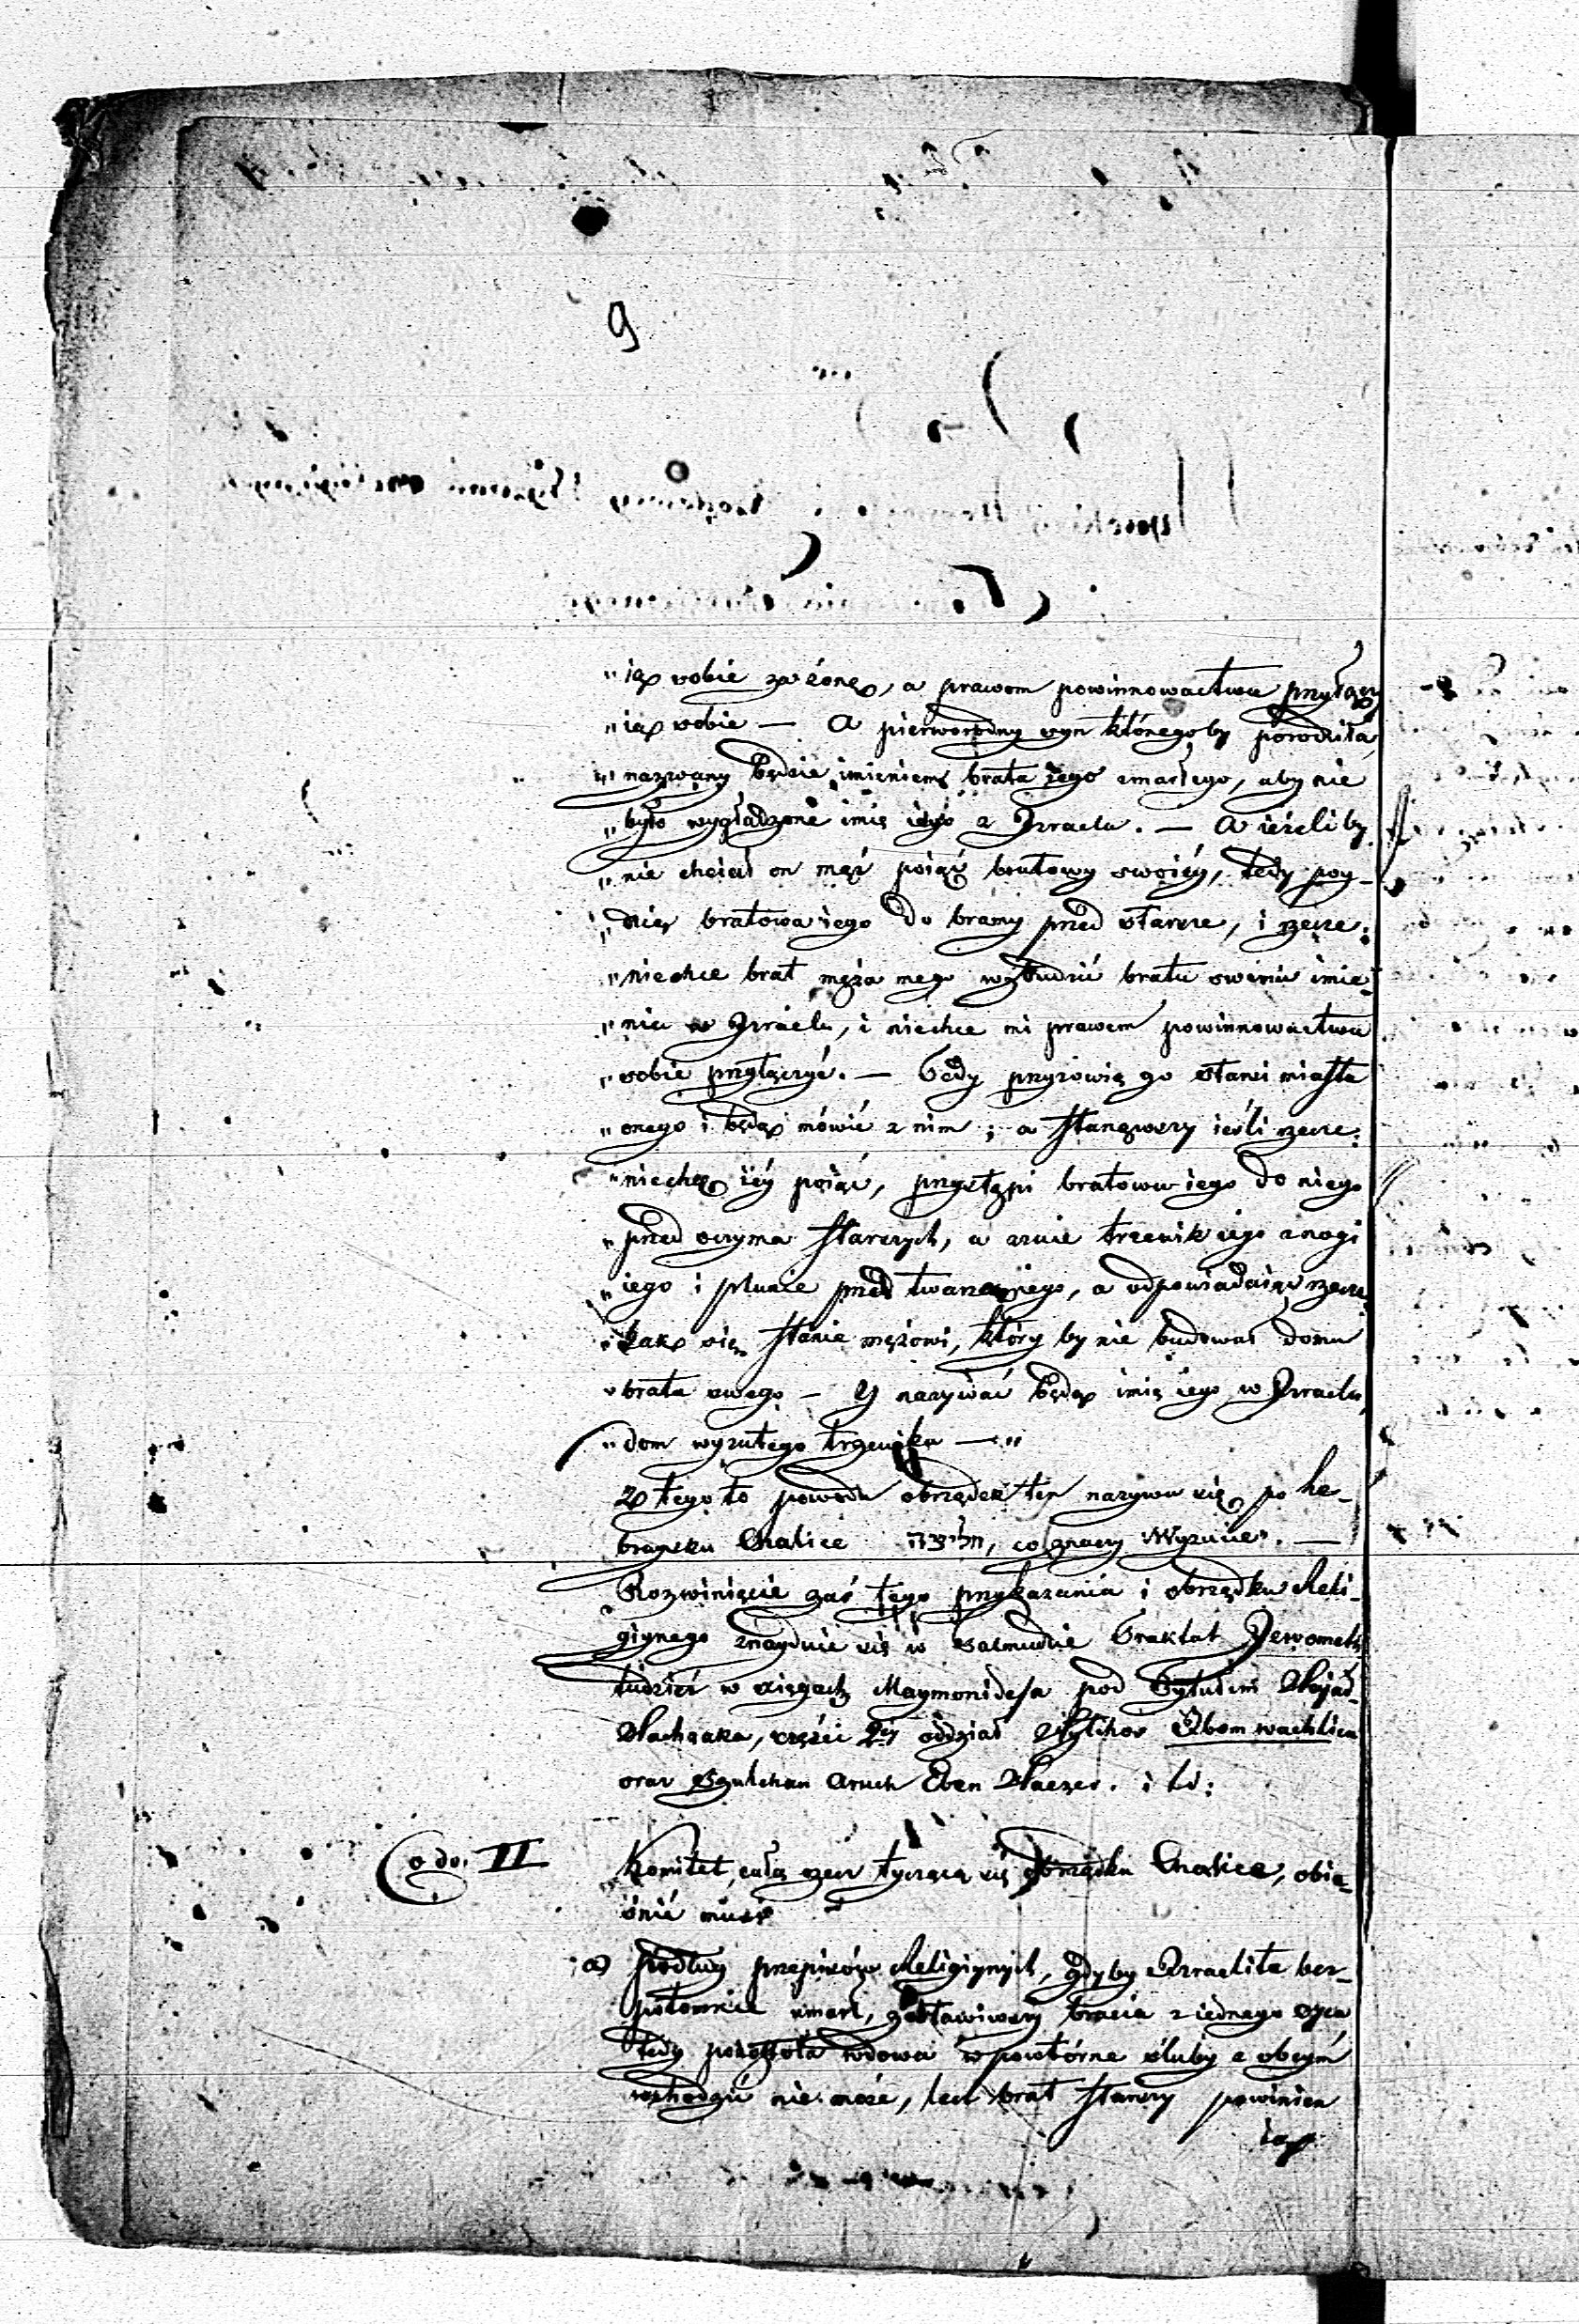 9
"ią sobie za żonę, a prawem powinnowactwa przyłączy
"ią sobie — A pierworodny syn któregoby porodziła
"nazwany będzie imieniem brata iego zmarłego, aby nie
"było wygładzone imię iego z Izraela. — A ieżeliby
"nie chciał on mąż poiąć bratowy swoiéy, tedy poy-
"dzie bratowa iego do bramy przed starsze, i rzecze:
"niechce brat męża mego wzbudzić bratu swemu imie-
"nia w Izraelu, i niechce mi prawem powinnowactwa
"sobie przyłączyć. — Tedy przyzowią go starsi miasta
"onego i będą mówić z nim; a stanąwszy ieśli rzecze:
"niechcę iéy poiąć, przystąpi bratowa iego do niego
"przed oczyma starszych, a zzuie trzewik iego z nogi
"iego i plunie przed twarzą iego, a odpowiadaiąc rzecze
"tak się stanie mężowi, który by nie budował domu
"brata swego — Y nazywać będą imię iego w Izraelu,
"dom wyzutego trzewika —"
Z tego to powodu obrządek ten nazywa się po he-
braysku Chalice חליצה, co znaczy Wyzucie. —
Rozwinięcie zaś tego przykazania i obrządku Reli-
giynego znayduie się w Talmudzie Traktat Jewomoth
tudzież w xięgach Maymonidesa pod Tytułem Hajad-
Hachsaka, części 2éy oddział Hylchos Ibom wachlica
oraz Szulchan Aruch Eben Haezer. i td:
Co do. II Komitet, całą rzecz tyczącą się obrządku Chalice, obia-
śnić musi
a) Podług przepisów Religiynych, gdyby Izraelita bez-
potomnie umarł, zostawiwszy bracia z iednego oyca
tedy pozostała wdowa w powtórne śluby z obcym
wchodzić nie może, lecz brat starszy powinien
ią